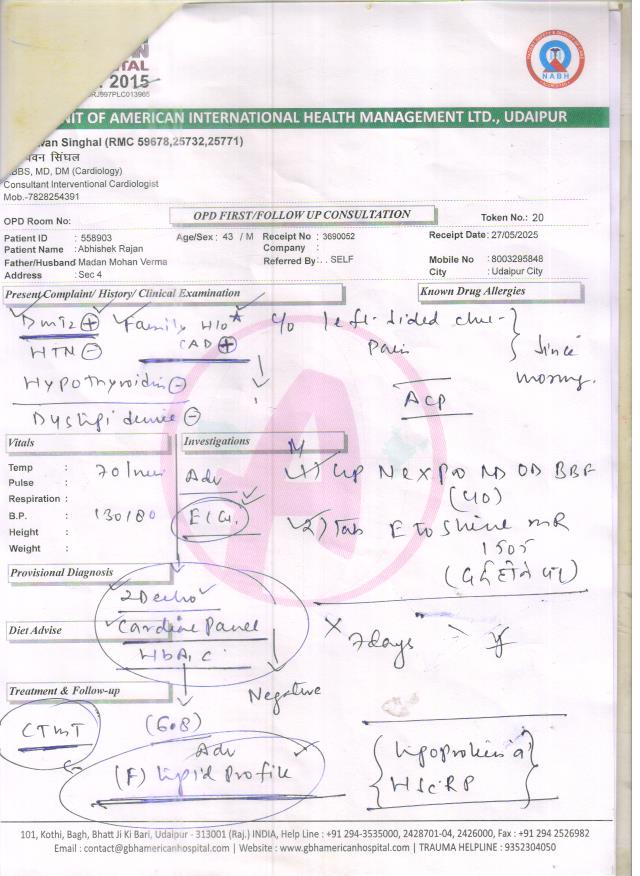 AN
ITAL
. 2015
RJ997PLC013965
NABH
NIT OF AMERICAN INTERNATIONAL HEALTH MANAGEMENT LTD., UDAIPUR
wan Singhal (RMC 59678,25732,25771)
पवन सिंघल
BBS, MD, DM (Cardiology)
Consultant Interventional Cardiologist
Mob.-7828254391
OPD Room No:
OPD FIRST/FOLLOW UP CONSULTATION
Token No.: 20
Patient ID : 558903 Age/Sex : 43 / M Receipt No : 3690052 Receipt Date: 27/05/2025
Patient Name : Abhishek Rajan Company :
Father/Husband Madan Mohan Verma Referred By: . . SELF Mobile No : 8003295848
Address : Sec 4 City : Udaipur City
Present Complaint/ History/ Clinical Examination
Known Drug Allergies
DmT2 + Family H/o c/o left-sided che-
HTN - CAD + Pain
Since
morning.
Hypothyroidism -
ACP
Dyslipidemia -
Vitals
Investigations
Temp :
Pulse : 70/min
Respiration :
B.P. : 130/80
Height :
Weight :
Adv
ECG.
1) Cap Nexpro RD OD BBF
(40)
2) Tab Etoshine MR
(दर्द होने पर)
Provisional Diagnosis
2D echo
Diet Advise
Cardiac Panel
HbA1c
x 7days
Negative
Treatment & Follow-up
CTMT
(6.8)
Adv
(F) Lipid Profile
Lipoprotein a
HSCRP
101, Kothi, Bagh, Bhatt Ji Ki Bari, Udaipur - 313001 (Raj.) INDIA, Help Line : +91 294-3535000, 2428701-04, 2426000, Fax : +91 294 2526982
Email : contact@gbhamericanhospital.com | Website : www.gbhamericanhospital.com | TRAUMA HELPLINE : 9352304050